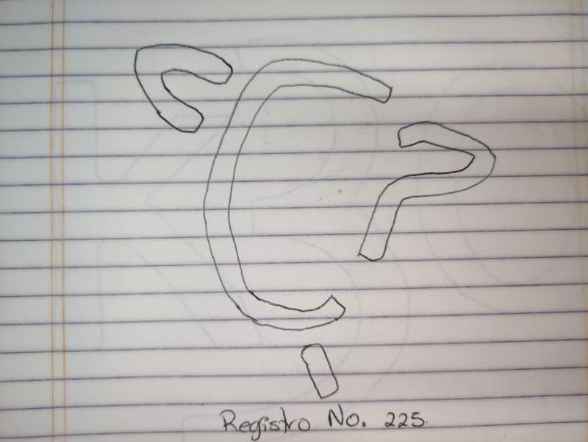 Registro No. 225